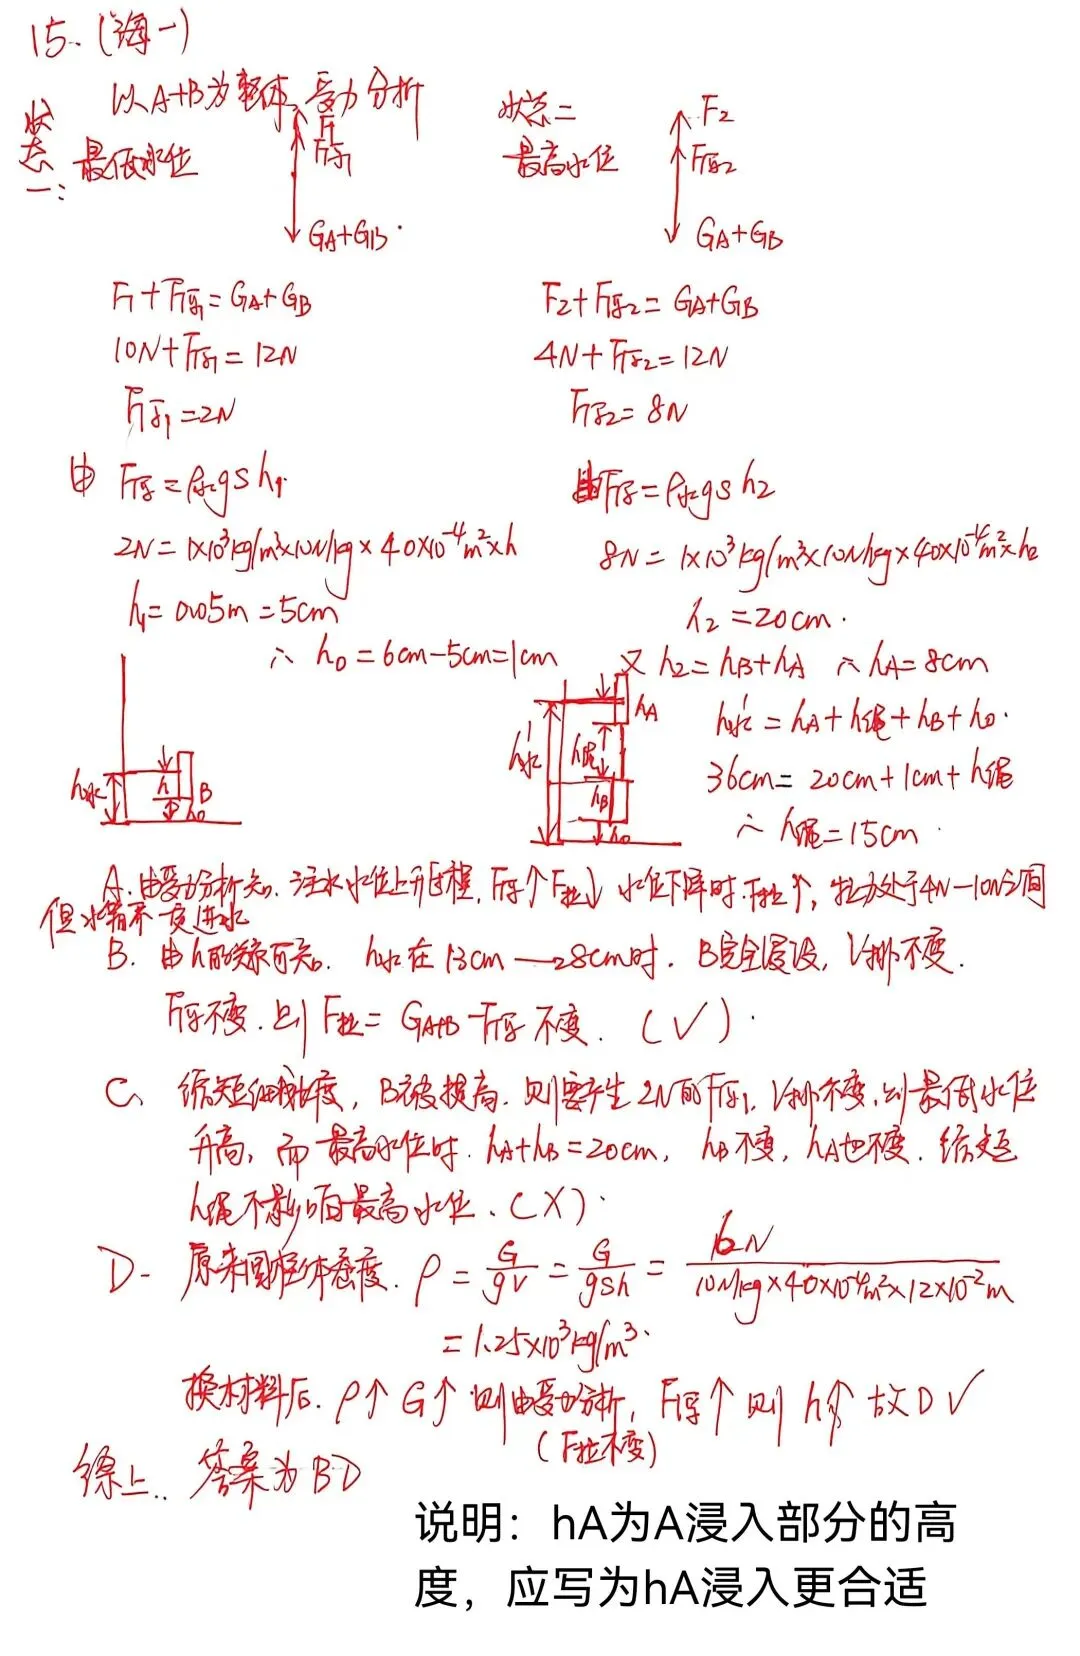 15. (海一)
以A+B为整体, 受力分析
状态一: 最低水位
F1
F浮1
GA+GB.
状态二
最高水位
F2
F浮2
GA+GB
F1+F浮1=GA+GB
10N+F浮1=12N
F浮1=2N
由 F浮=ρ水gsh1.
2N=1×10³kg/m³×10N/kg×40×10⁻⁴m²×h
h1=0.05m=5cm
∴ h0=6cm-5cm=1cm
F2+F浮2=GA+GB
4N+F浮2=12N
F浮2=8N
由F浮=ρ水gsh2
8N=1×10³kg/m³×10N/kg×40×10⁻⁴m²×h2
h2=20cm.
又 h2=hB+hA ∴hA=8cm
h水'=hA+h绳+hB+h0.
36cm=20cm+1cm+h绳
∴h绳=15cm.
h水 h B h0
h水' hA h绳 hB h0
A.由受力分析知. 注水水位上升过程, F浮↑F拉↓ 水位下降时.F拉↑, 拉力处于4N—10N之间
但水箱不一定进水
B. 由h的关系可知. h水在13cm—28cm时. B完全浸没, V排不变.
F浮不变. 则F拉=GA+B-F浮不变. (√).
C、缩短细绳长度, B被提高. 则要产生2N的F浮1, V排不变, 则最低水位
升高, 而最高水位时. hA+hB=20cm, hB不变, hA也不变. 缩短
h绳不影响最高水位. (×).
D- 原来圆柱体密度. ρ=G/gV=G/gSh=6N/10N/kg×40×10⁻⁴m²×12×10⁻²m
=1.25×10³kg/m³.
换材料后. ρ↑ G↑ 则由受力分析, F浮↑ 则 h↑ 故D√
(F拉不变)
综上.. 答案为BD
说明：hA为A浸入部分的高
度，应写为hA浸入更合适